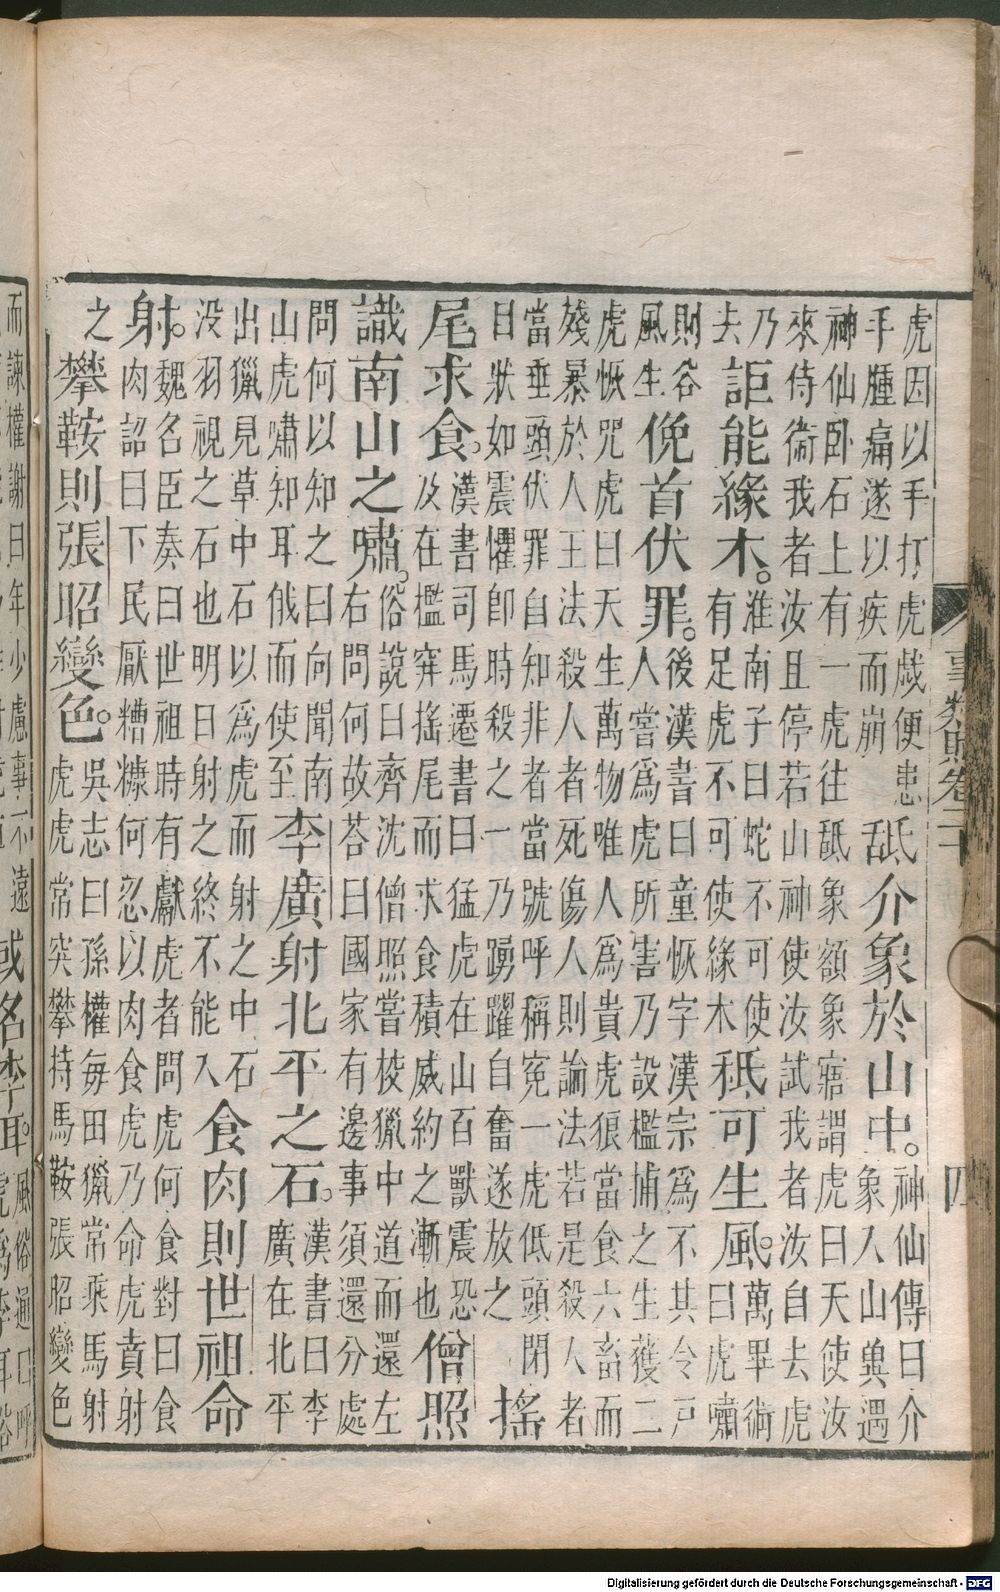 事類賦卷二十 四
虎因以手打虎戲便患
手腫痛遂以疾而崩
舐介象於山中。
神仙傳曰介
象入山與遇
神仙臥石上有一虎往舐象額象寤謂虎曰天使汝
來侍衛我者汝且停若山神使汝試我者汝自去虎
乃
去
詎能緣木。
淮南子曰蛇不可使
有足虎不可使緣木
秪可生風。
萬畢術
曰虎嘯
則谷
風生
俛首伏罪。
後漢書曰童恢字漢宗為不其令戸
人嘗為虎所害乃設檻捕之生獲二
虎恢咒虎曰天生萬物唯人為貴虎狼當食六畜而
殘暴於人王法殺人者死傷人則論法若是殺人者
當垂頭伏罪自知非者當號呼稱冤一虎低頭閉
目狀如震懼即時殺之一乃踴躍自奮遂放之
搖
尾求食。
漢書司馬遷書曰猛虎在山百獸震恐
及在檻穽搖尾而求食積威約之漸也
僧照
識南山之嘯。
俗說曰齊沈僧照嘗校獵中道而還左
右問何故荅曰國家有邊事須還分處
問何以知之曰向聞南
山虎嘯知耳俄而使至
李廣射北平之石。
漢書曰李
廣在北平
出獵見草中石以為虎而射之中石
没羽視之石也明日射之終不能入
食肉則世祖命
射。
魏名臣奏曰世祖時有獻虎者問虎何食對曰食
肉詔曰下民厭糟糠何忍以肉食虎乃命虎賁射
之
攀鞍則張昭變色。
吳志曰孫權每田獵常乘馬射
虎虎常突攀持馬鞍張昭變色
而諫權謝曰年少慮事不遠
或名李耳。
風俗通曰呼
虎為李耳俗
Digitalisierung gefördert durch die Deutsche Forschungsgemeinschaft - DFG